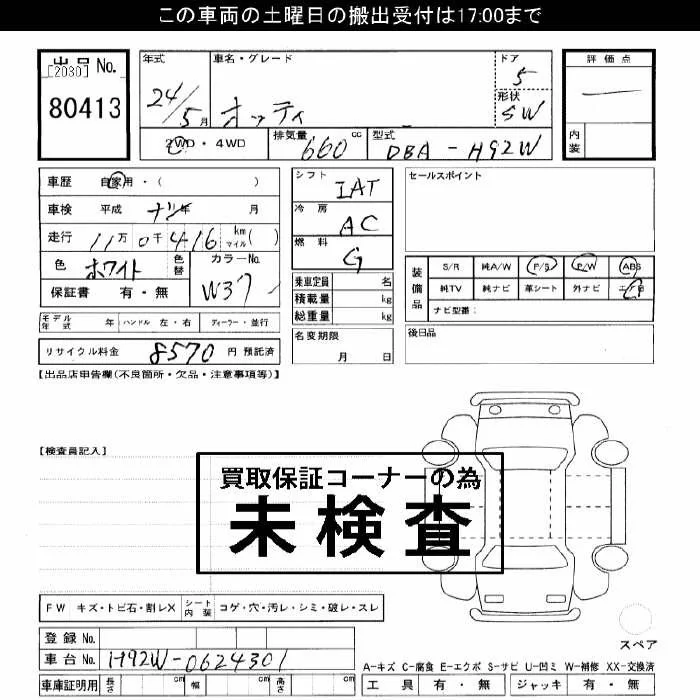 この車両の土曜日の搬出受付は17:00まで
出品 No.
[2030]
80413
年式
24/5月
車名・グレード
オッティ
ドア
5
形状
SW
評価点
内装
2WD・4WD
排気量
660 cc
型式
DBA-H92W
車歴 自家用・( )
車検 平成 ナシ年 月
走行 11万0千416 km マイル( )
色 ホワイト 色替
カラーNo.
W37
保証書 有・無
モデル年式 年 ハンドル 左・右 ディーラー・並行
リサイクル料金 8570 円 預託済
シフト
IAT
冷房
AC
燃料
G
乗車定員 名
積載量 kg
総重量 kg
名変期限
月 日
セールスポイント
装備品
S/R 純A/W P/S P/W ABS
純TV 純ナビ 革シート 外ナビ
ナビ型番:
後日品
【出品店申告欄(不良箇所・欠品・注意事項等)】
【検査員記入】
買取保証コーナーの為
未検査
FW キズ・トビ石・割レX
シート内装 コゲ・穴・汚レ・シミ・破レ・スレ
登録 No.
車台 No. H92W-0624301
車庫証明用 長さ cm 幅 cm 高さ cm
スペア
A-キズ C-腐食 E-エクボ S-サビ U-凹ミ W-補修 XX-交換済
工具 有・無 ジャッキ 有・無